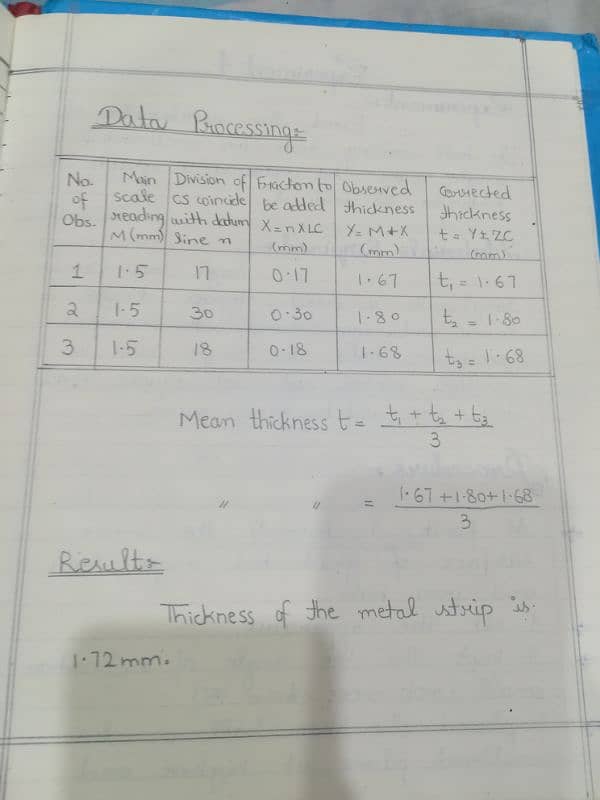 Data Processing:-
No. of Obs. | Main scale reading M (mm) | Division of CS coincide with datum line n | Fraction to be added X = n X LC (mm) | Observed thickness Y = M + X (mm) | Corrected thickness t = Y ± ZC (mm)
1 | 1.5 | 17 | 0.17 | 1.67 | t₁ = 1.67
2 | 1.5 | 30 | 0.30 | 1.80 | t₂ = 1.80
3 | 1.5 | 18 | 0.18 | 1.68 | t₃ = 1.68
Mean thickness t = (t₁ + t₂ + t₃) / 3
〃 〃 = (1.67 + 1.80 + 1.68) / 3
Result:-
Thickness of the metal strip is
1.72 mm.